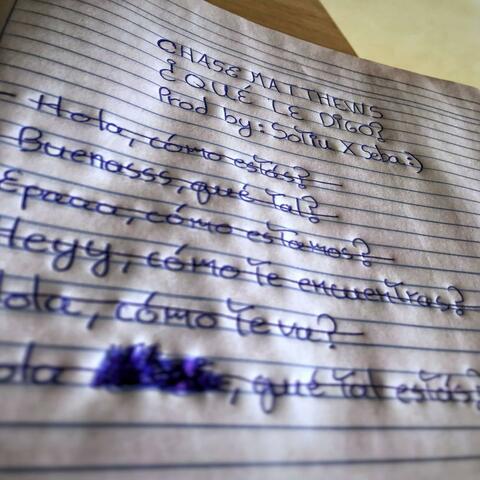 CHASE MATTHEWS
¿QUÉ TE DIGO?
Prod by: Sotiu X Seba :)
- Hola, cómo estás?
Buenasss, qué tal?
Epaaa, cómo estamos?
Heyy, cómo te encuentras?
Hola, cómo te va?
Hola , qué tal estás?